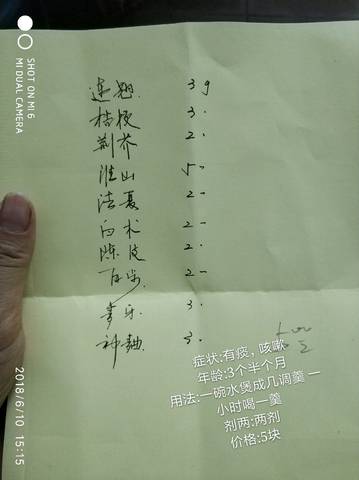 SHOT ON MI 6
MI DUAL CAMERA
连翘 3g
桔梗 3
荆芥 2
淮山 5
法夏 2
白术 2
陈皮 2
百部 2
麦牙 3
神曲 3
症状:有痰，咳嗽
年龄:3个半个月
用法:一碗水煲成几调羹 一
小时喝一羹
剂两:两剂
价格:5块
2018/6/10 15:15